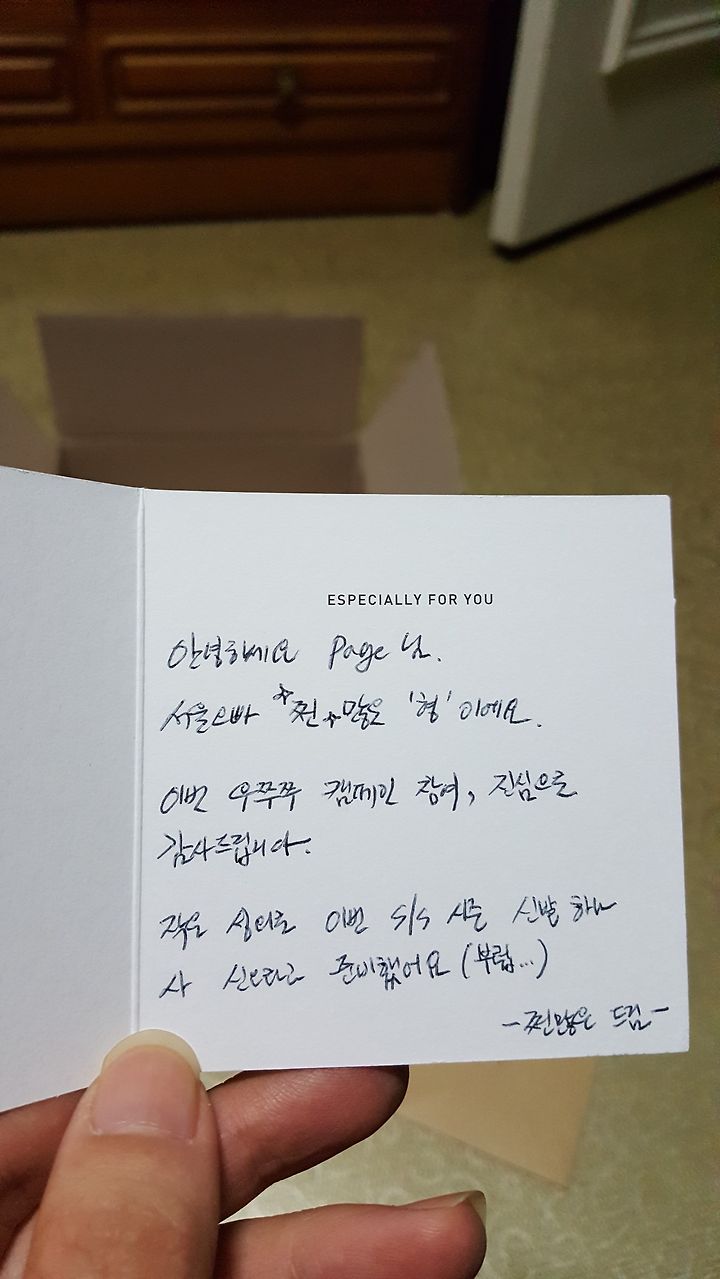 ESPECIALLY FOR YOU
안녕하세요 Page 님.
서울오빠 ☆찐☆많은 '형' 이에요.
이번 우쭈쭈 캠페인 참여, 진심으로
감사드립니다.
작은 성의로 이번 S/S 시즌 신발 하나
사 신으라고 준비했어요 (부럽...)
-찐많은 드림-